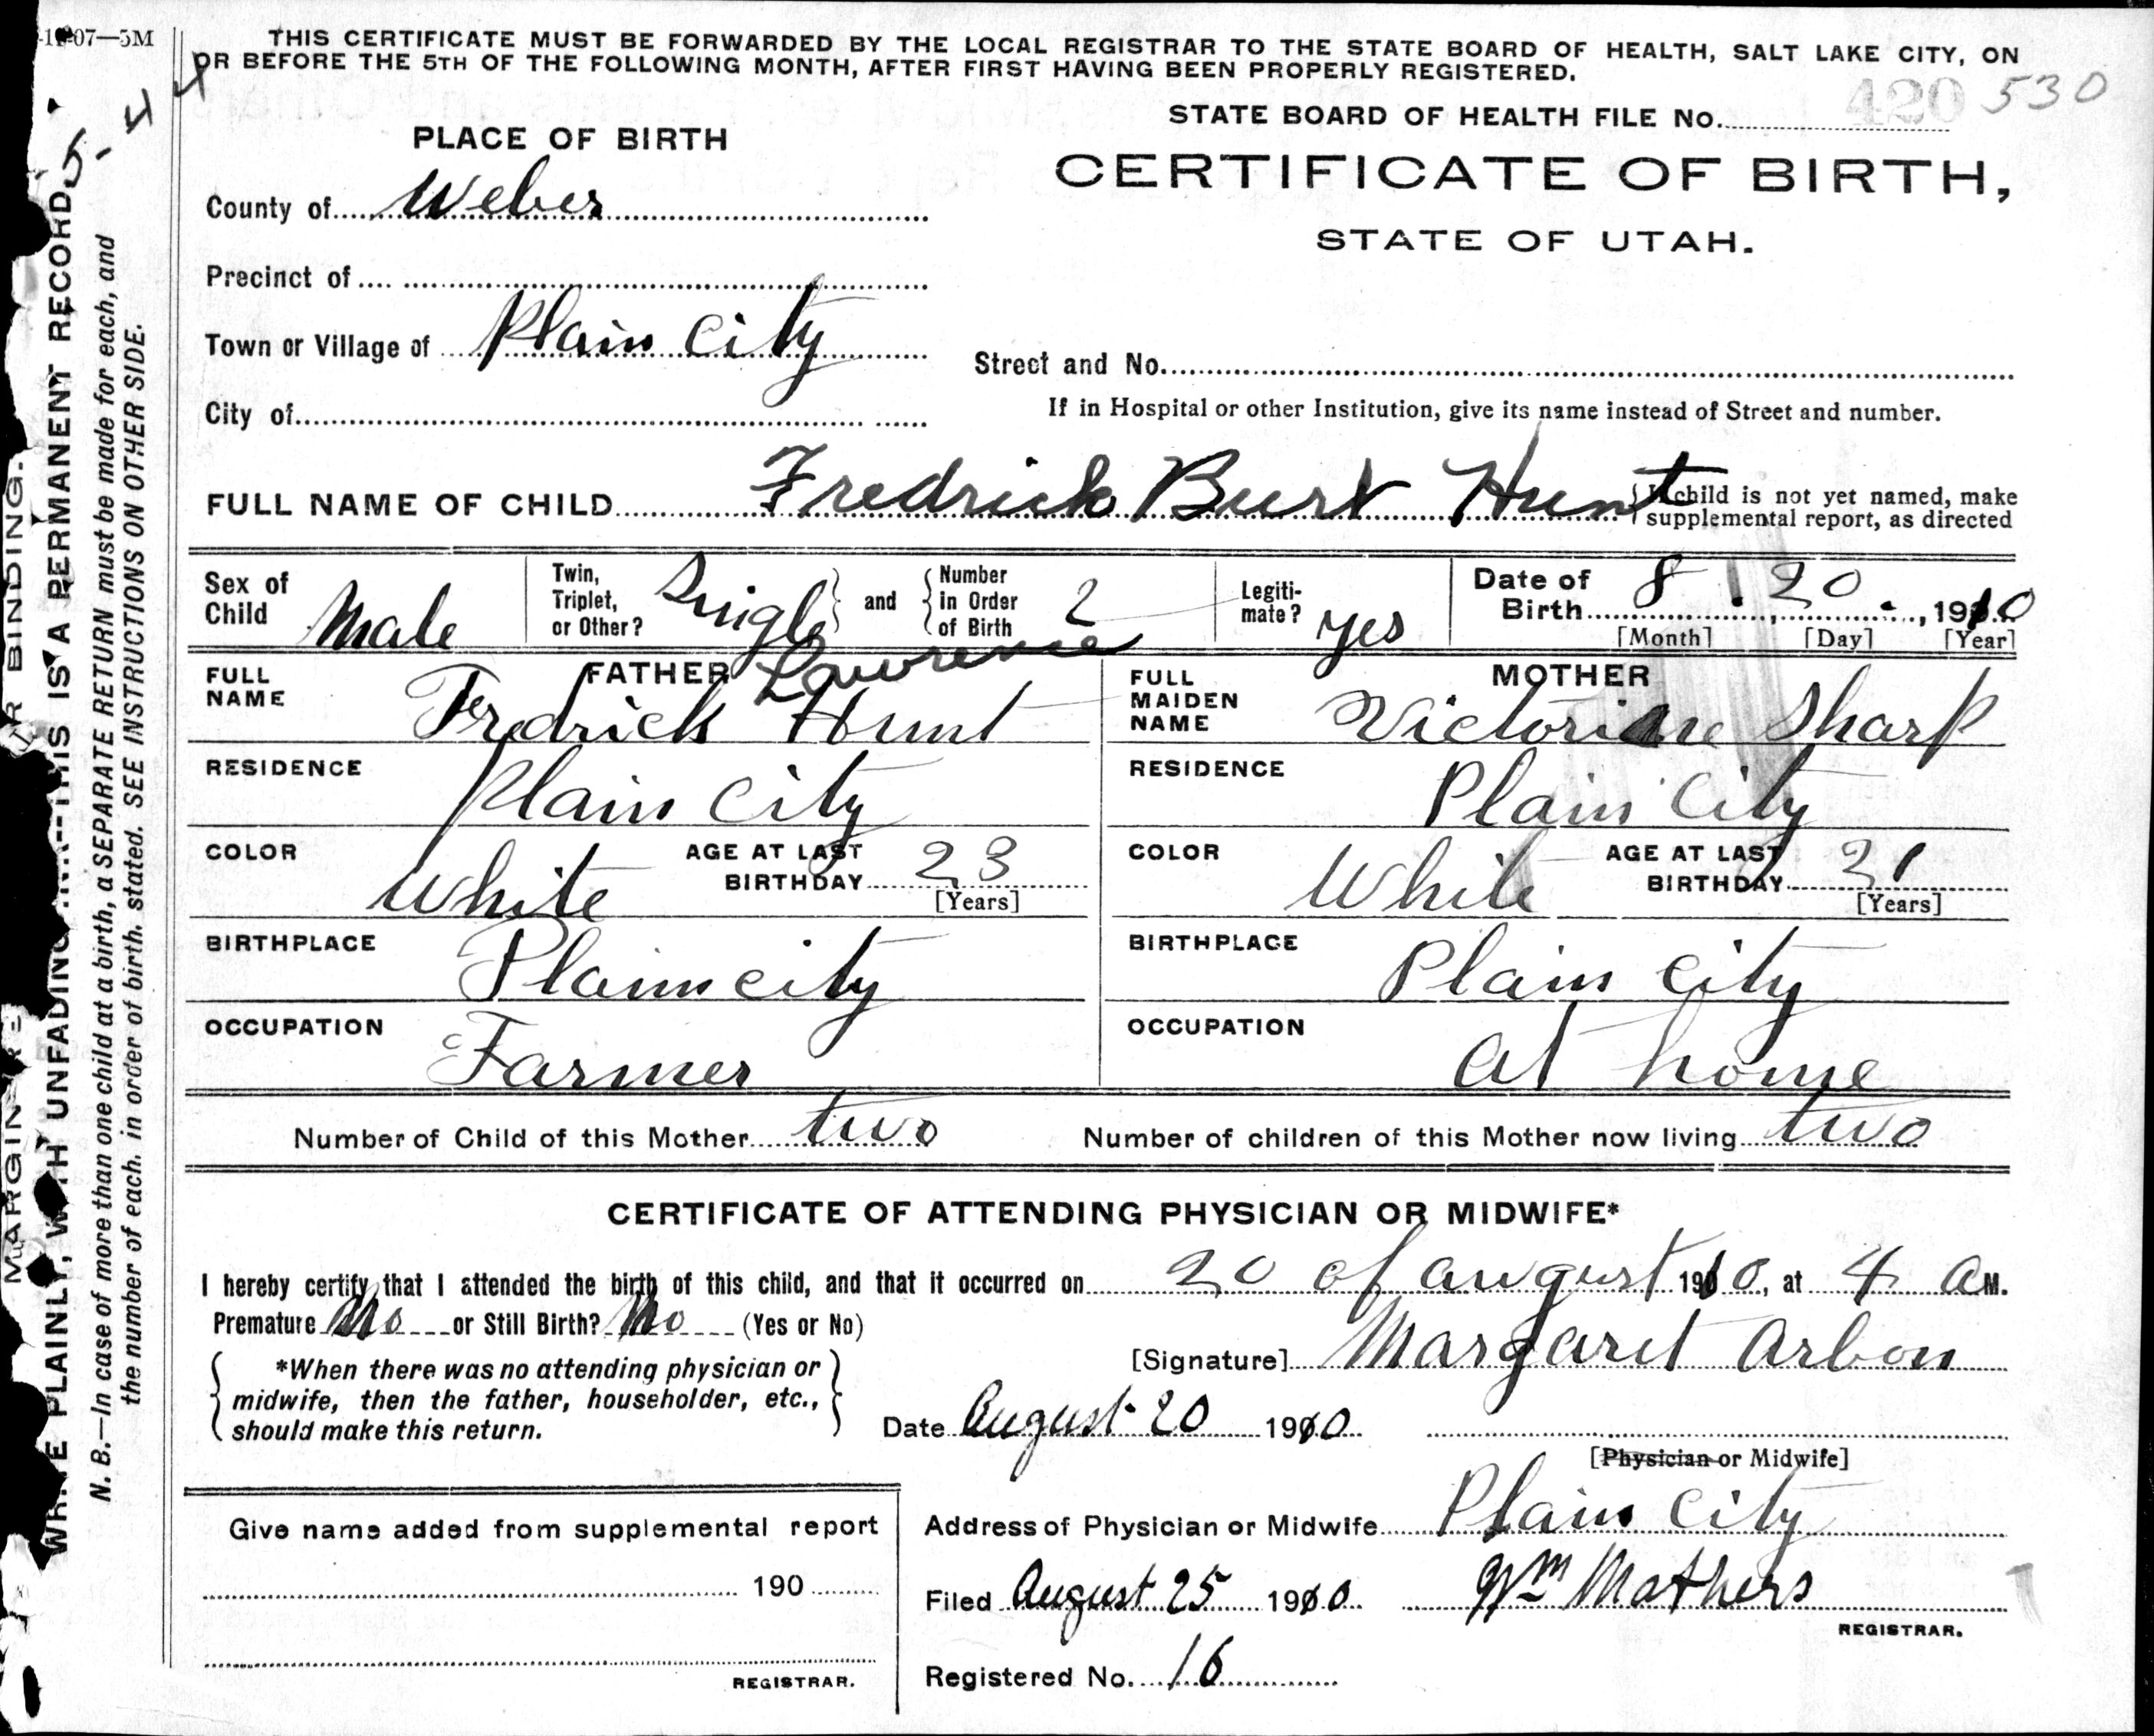 -1-07—5M
THIS CERTIFICATE MUST BE FORWARDED BY THE LOCAL REGISTRAR TO THE STATE BOARD OF HEALTH, SALT LAKE CITY, ON
OR BEFORE THE 5TH OF THE FOLLOWING MONTH, AFTER FIRST HAVING BEEN PROPERLY REGISTERED.
STATE BOARD OF HEALTH FILE No. 420 530
PLACE OF BIRTH
CERTIFICATE OF BIRTH,
STATE OF UTAH.
County of Weber
Precinct of
Town or Village of Plain City
Street and No.
City of
If in Hospital or other Institution, give its name instead of Street and number.
FULL NAME OF CHILD Fredrick Burt Hunt
{If child is not yet named, make
supplemental report, as directed
Sex of Child Male
Twin, Triplet, or Other? Single and Number in Order of Birth 2
Legiti-mate? yes
Date of Birth 8 . 20 , 1910
[Month] [Day] [Year]
FATHER
FULL NAME Fredrick Lawrence Hunt
MOTHER
FULL MAIDEN NAME Victorine Sharp
RESIDENCE Plain City
RESIDENCE Plain City
COLOR White AGE AT LAST BIRTHDAY 23 [Years]
COLOR White AGE AT LAST BIRTHDAY 21 [Years]
BIRTHPLACE Plain city
BIRTHPLACE Plain City
OCCUPATION Farmer
OCCUPATION At home
Number of Child of this Mother two Number of children of this Mother now living two
CERTIFICATE OF ATTENDING PHYSICIAN OR MIDWIFE*
I hereby certify that I attended the birth of this child, and that it occurred on 20 of august 1910, at 4 a M.
Premature No or Still Birth? No (Yes or No)
*When there was no attending physician or
midwife, then the father, householder, etc.,
should make this return.
[Signature] Margaret Arbon
Date August 20 1910
[Physician or Midwife]
Give name added from supplemental report
190
REGISTRAR.
Address of Physician or Midwife Plain City
Filed August 25 1910 Wm Mathers
REGISTRAR.
Registered No. 16
WRITE PLAINLY, WITH UNFADING INK--THIS IS A PERMANENT RECORD
N. B.—In case of more than one child at a birth, a SEPARATE RETURN must be made for each, and
the number of each, in order of birth, stated. SEE INSTRUCTIONS ON OTHER SIDE.